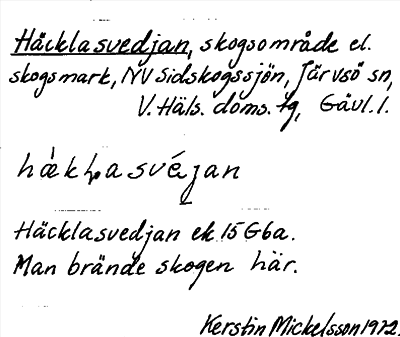 Häcklasvedjan, skogsområde el.
skogsmark, NV Sidskogssjön, Järvsö sn,
V. Häls. doms. tg, Gävl. l.
Häcklasvedjan ek 15 G 6a.
Man brände skogen här.
Kerstin Mickelsson 1972.